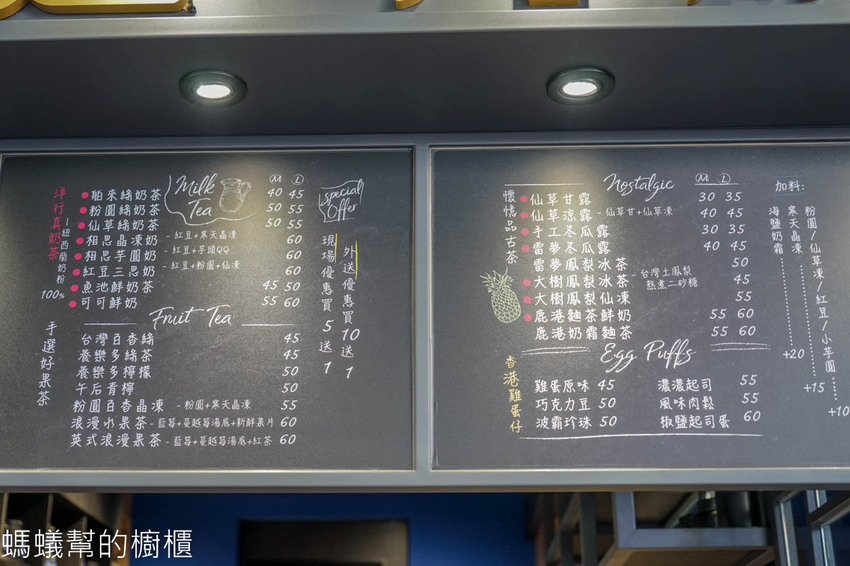 洋行真奶茶
紐西蘭奶粉100%
Milk Tea
M L
舶來綿奶茶 40 45
粉圓綿奶茶 50 55
仙草綿奶茶 50 55
相思晶凍奶 -紅豆+寒天晶凍 60
相思芋圓奶 -紅豆+芋頭QQ 60
紅豆三思奶 -紅豆+粉圓+仙凍 60
魚池鮮奶茶 45 50
可可鮮奶 55 60
Special Offer
現場優惠買5送1
外送優惠買10送1
手選好果茶
Fruit Tea
台灣百香綠 45
養樂多綠茶 45
養樂多檸檬 50
午后青檸 50
粉圓百香晶凍 -粉圓+寒天晶凍 55
浪漫水果茶 -藍莓+蔓越莓湯底+新鮮果片 60
英式浪漫果茶 -藍莓+蔓越莓湯底+紅茶 60
懷憶品古茶
Nostalgic
M L
仙草甘露 30 35
仙草涼露 -仙草甘+仙草凍 40 45
手工冬瓜露 30 35
雷夢冬瓜露 40 45
雷夢鳳梨冰茶 50
大樹鳳梨冰茶 -台灣土鳳梨熬煮二砂糖 45
大樹鳳梨仙凍 55
鹿港麵茶鮮奶 55 60
鹿港奶霜麵茶 55 60
香港雞蛋仔
Egg Puffs
雞蛋原味 45 濃濃起司 55
巧克力豆 50 風味肉鬆 55
波霸珍珠 50 椒鹽起司蛋 60
加料:
粉圓/仙草凍/紅豆/小芋圓 +10
寒天晶凍 +15
海鹽奶霜 +20
螞蟻幫的櫥櫃